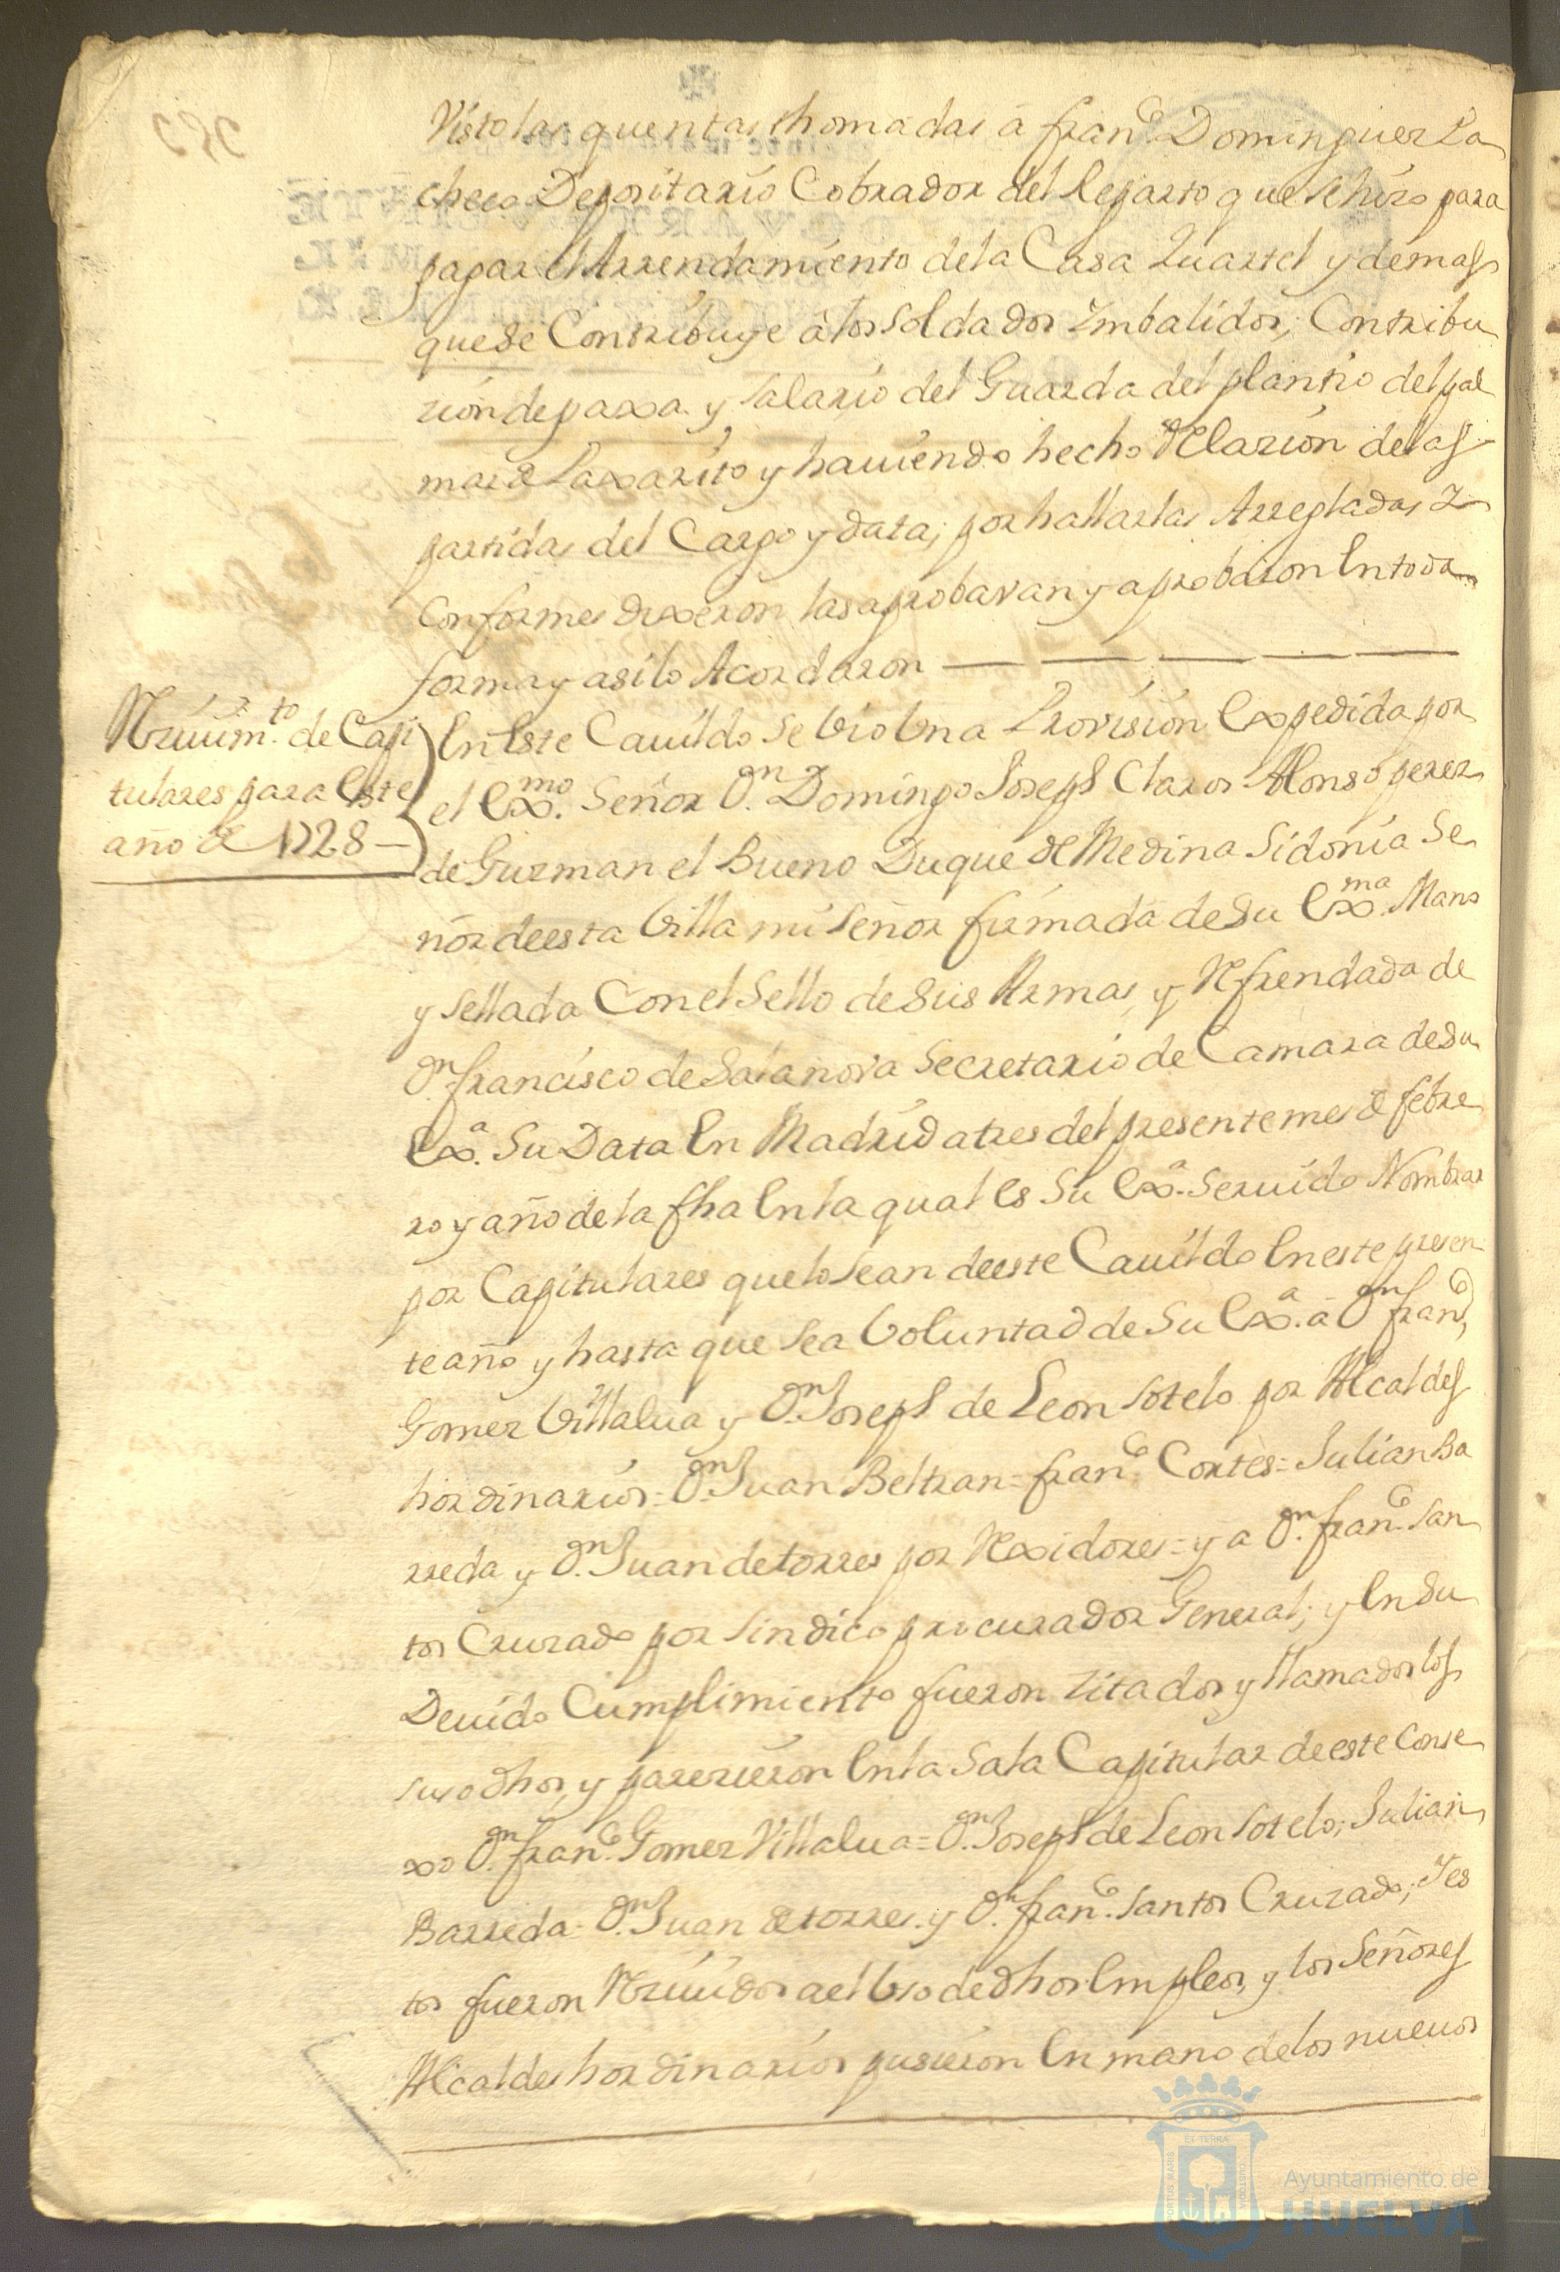 Visto las quentas thomadas á fran.co Dominguez Pa
checo Depositario Cobrador del Reparto que se hizo para
pagar el Arrendamiento de la Casa Quartel y demas
que se Contribuye á los soldados Imbalidos; Contribu
zion de paxa y salario del Guarda del plantio del pal
mar de Paxarito y haviendo hecho Relazion de las
partidas del Cargo y data; por hallarlas Arregladas I
Conformes dixeron las aprobavan y aprobaron En toda
forma y asi lo Acordaron
Rzuim.to de Capi
tulares para Este
año de 1728
En Este Cauildo se Vio Vna Provision Expedida por
el Ex.mo Señor D.n Domingo Joseph Claros Alonso perez
de Guzman el Bueno Duque de Medina Sidonia Se
ñor de esta Villa mi Señor firmada de su Ex.ma Mano
y sellada Con el Sello de sus Armas, y Refrendada de
D.n francisco de Salanova Secretario de Camara de su
Ex.a Su Data En Madrid a tres del presente mes de febre
ro y año de la fha En la qual Es Su Ex.a Seruido Nombrar
por Capitulares que lo sean de este Cauildo En este presen
te año y hasta que sea Voluntad de Su Ex.a á D.n fran.co
Gomez Villalua y D.n Joseph de Leon Sotelo por Alcaldes
hordinarios = D.n Juan Beltran = fran.co Cortés = Julian Ba
rreda y D.n Juan de torres por Rexidores = y a D.n fran.co San
tos Cruzado por Sindico procurador General; y En su
Deuido Cumplimiento fueron zitados y llamados los
suso dhos, y parezieron En la Sala Capitular de este Conse
xo D.n fran.co Gomez Villalua = D.n Joseph de Leon Sotelo; Julian
Barreda = D.n Juan de torres y D.n fran.co Santos Cruzado; Y es
tos fueron Rzuuidos a el Vso de dhos Empleos, y los Señores
Alcaldes hordinarios pusieron En mano de los nueuos
Ayuntamiento de
HUELVA